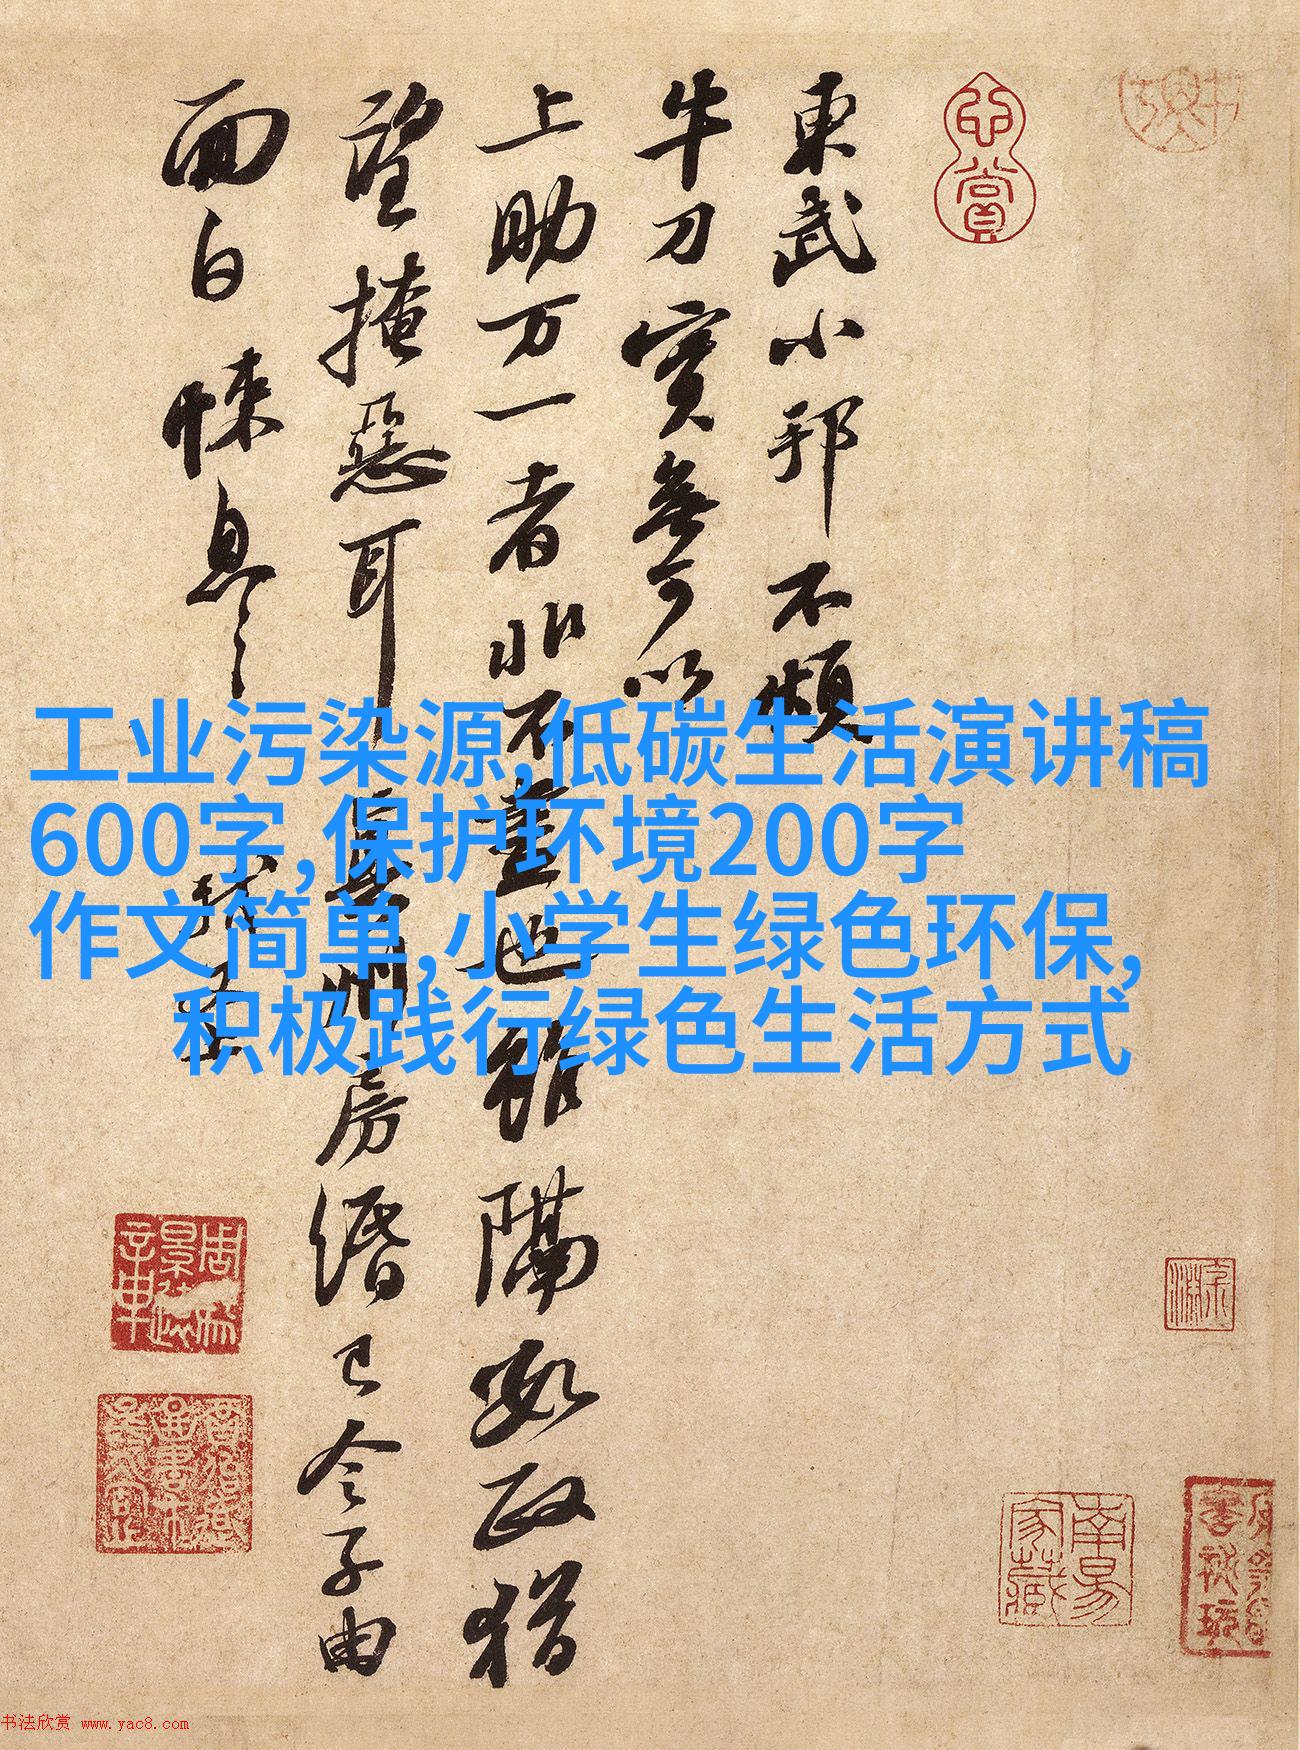 東武小邦不煩
牛刀實無可以
上助万一者非不盡也雖隔數政猶
望掩惡耳真州房緡已令子由
面白悚息
工业污染源,低碳生活演讲稿
600字,保护环境200字
作文简单,小学生绿色环保,
积极践行绿色生活方式
书法欣赏 www.yac8.com